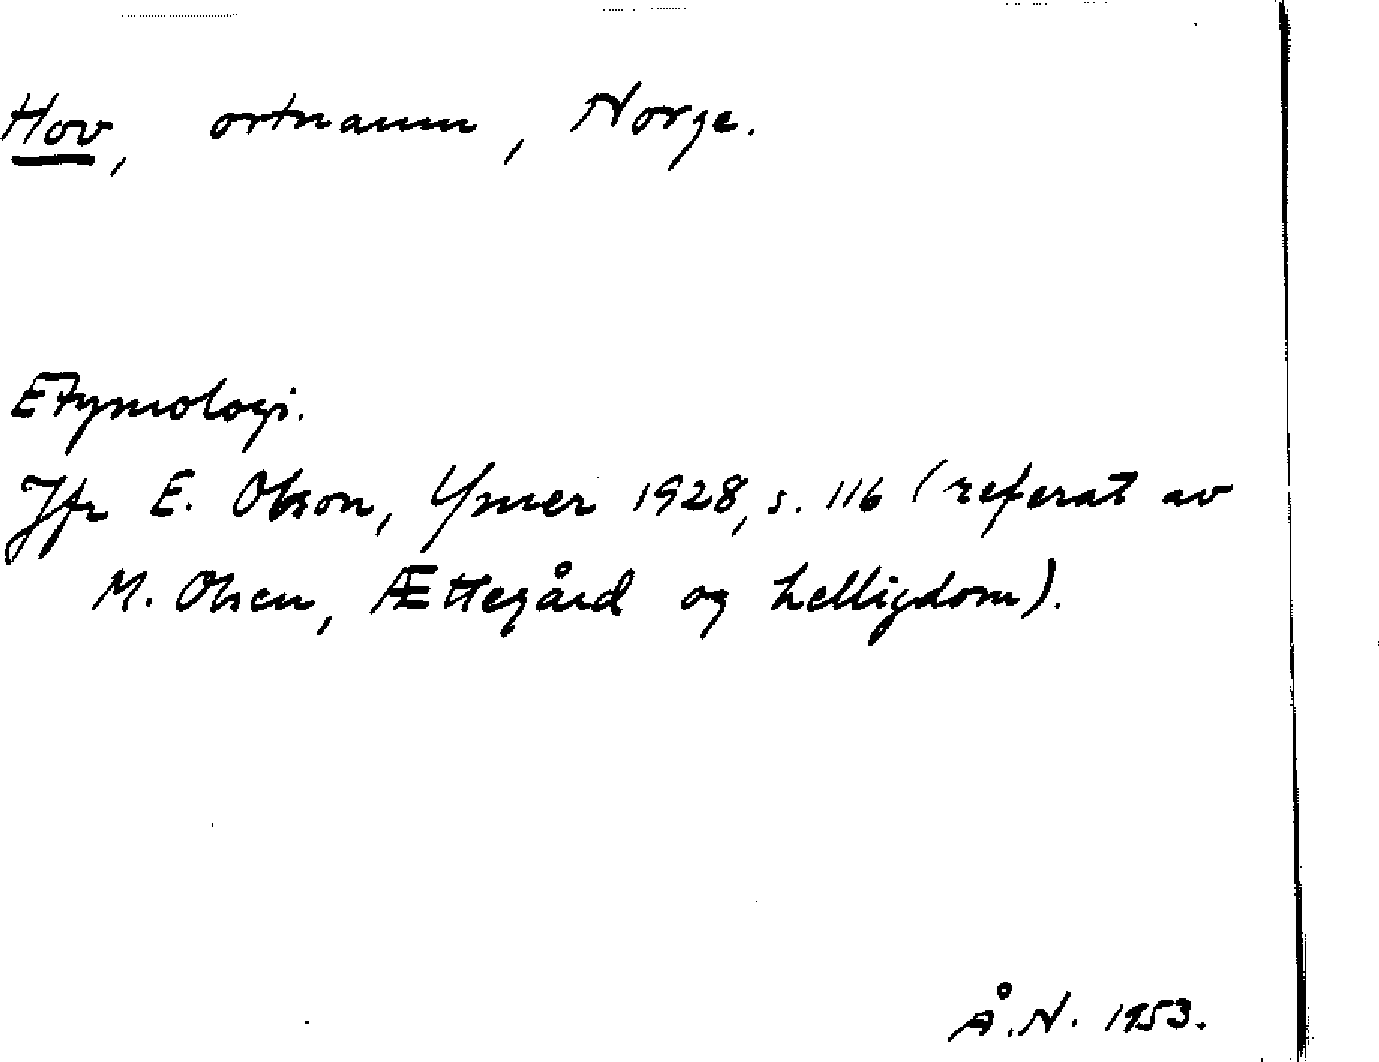 Hov, ortnamn, Norge.
Etymologi.
Jfr E. Olson, Ymer 1928, s. 116 (referat av
M. Olsen, Ættegård og helligdom).
Å.N. 1953.